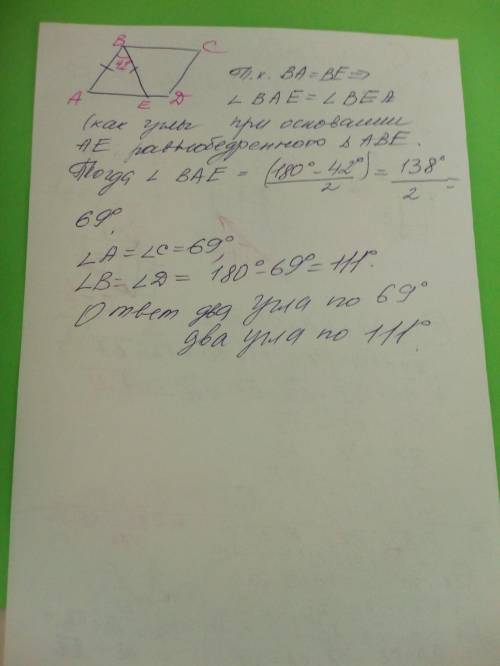 B C
42°
A E D
Т.к. BA = BE ⇒
∠ BAE = ∠ BEA
(как углы при основании
AE равнобедренного Δ ABE.
Тогда ∠ BAE = (180° - 42°)/2 = 138°/2 =
69°,
∠A = ∠C = 69°,
∠B = ∠D = 180° - 69° = 111°.
Ответ два угла по 69°
два угла по 111°.